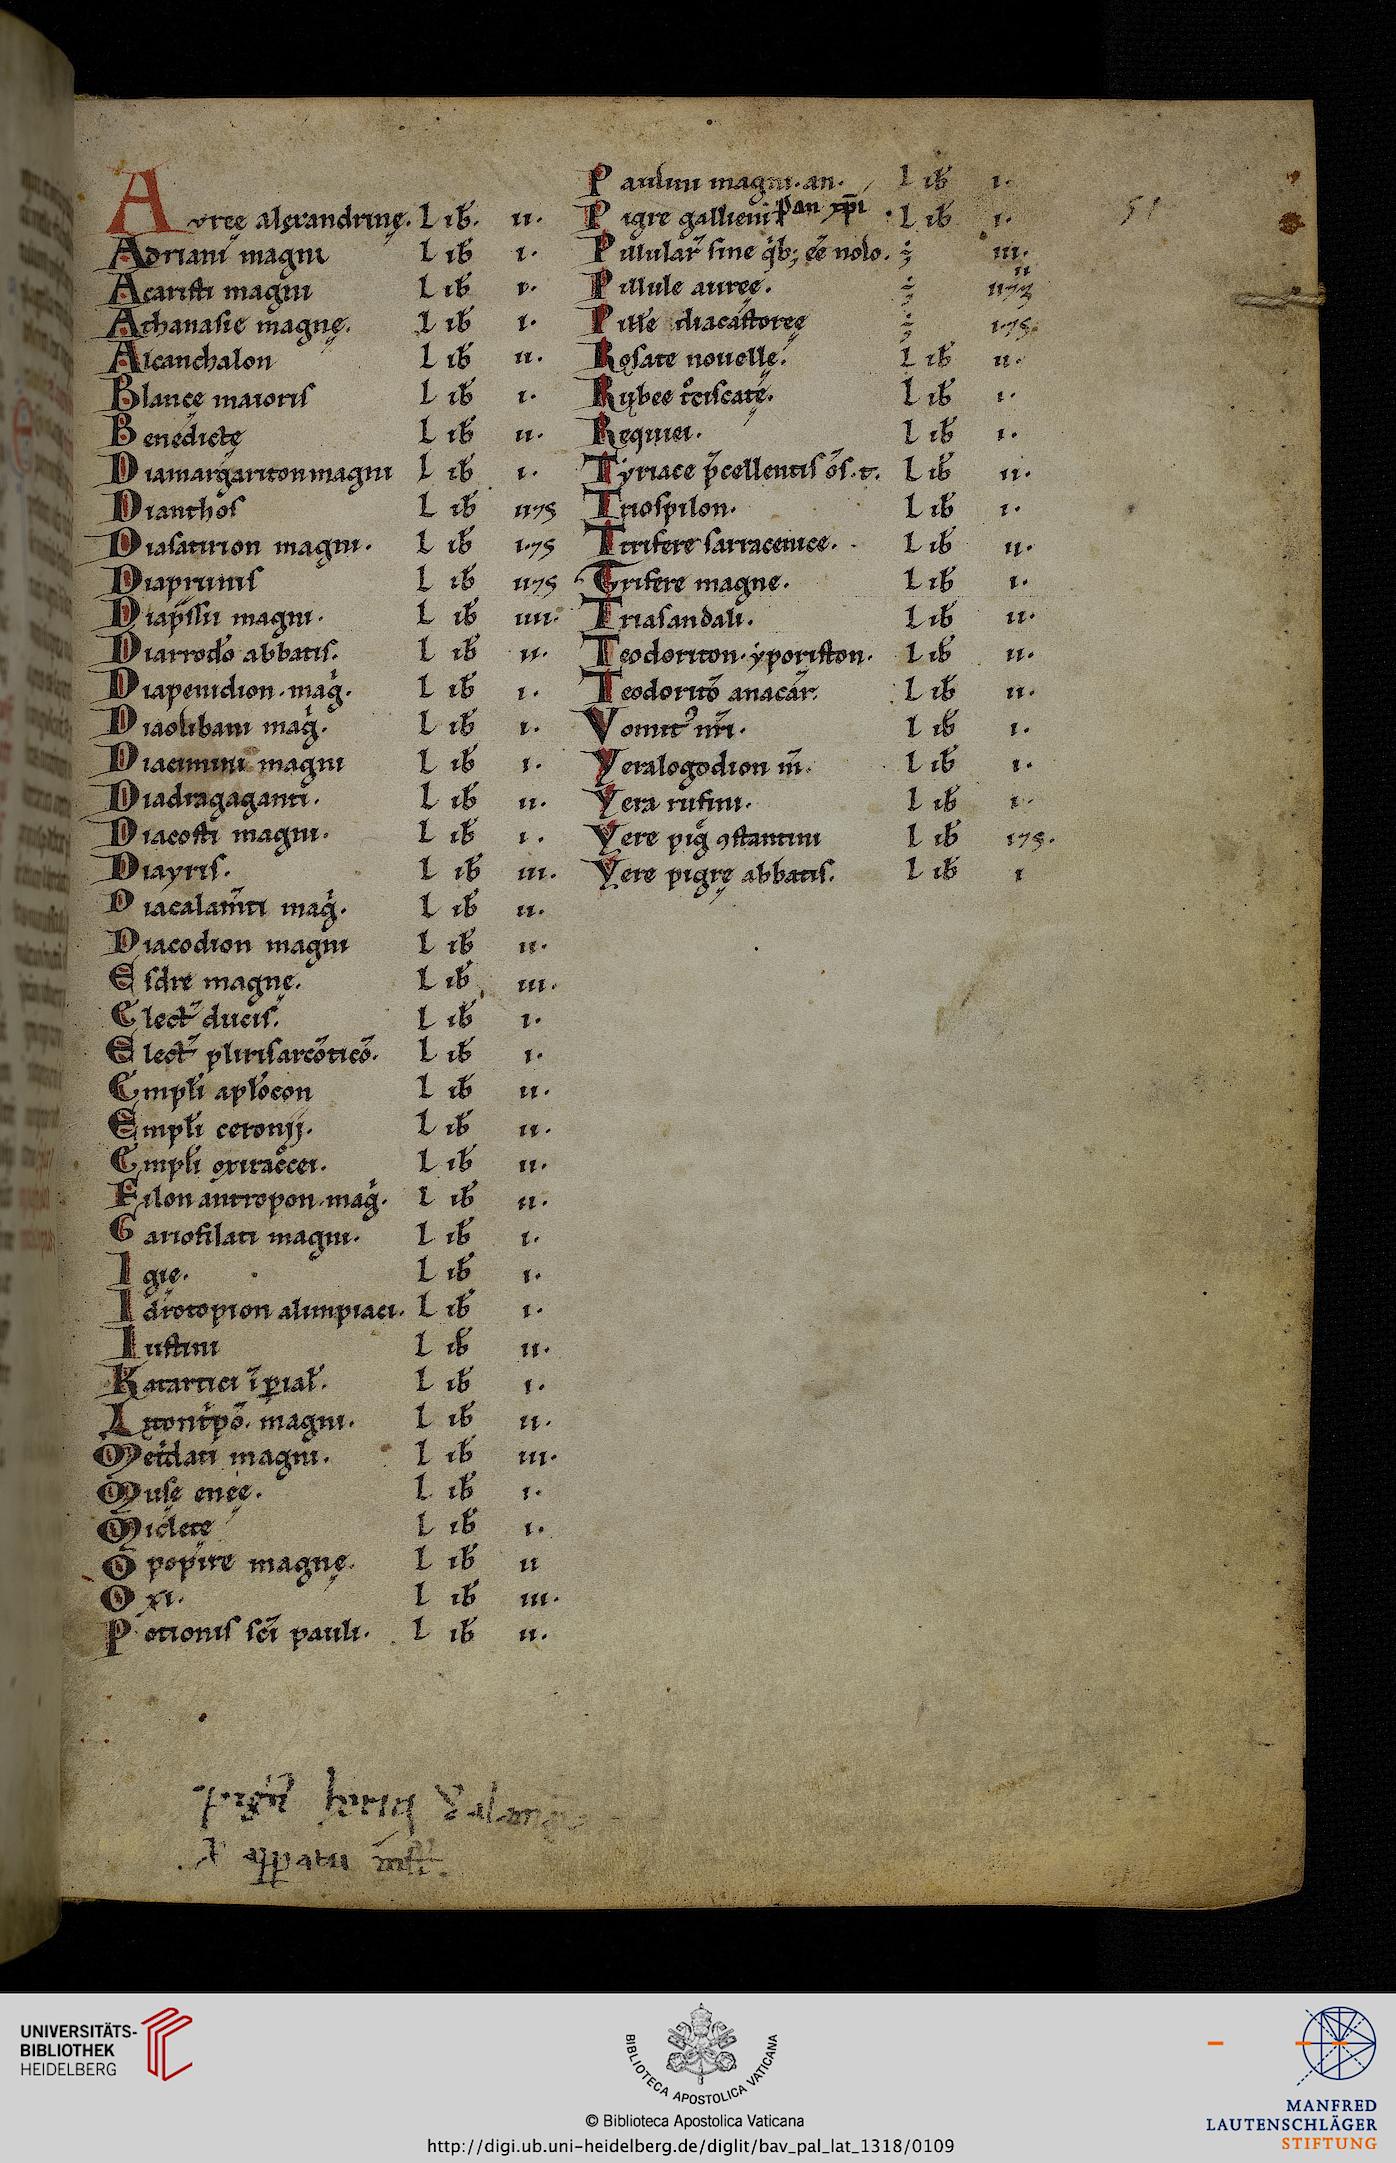 Avreę alexandrinę. Lib̄. ii.
Adriani magni Lib̄ i.
Acaristi magni Lib̄ i.
Athanasie magnę. Lib̄ i.
Alcanchalon Lib̄ ii.
Blance maioris Lib̄ i.
Benedictę Lib̄ ii.
Diamargariton magni Lib̄ i.
Dianthos Lib̄ ii⁊s
Diasatirion magni. Lib̄ i.⁊s
Diaprunis Lib̄ ii⁊s
Diap̄ssii magni. Lib̄ iiii.
Diarrodo᷒ abbatis. Lib̄ ii.
Diapenidion. mag̾. Lib̄ i.
Diaolibani mag̾. Lib̄ i.
Diacimini magni Lib̄ i.
Diadragaganti. Lib̄ ii.
Diacosti magni. Lib̄ i.
Diayris. Lib̄ iii.
Diacalam̄ti mag̾. Lib̄ ii.
Diacodion magni Lib̄ ii.
Esdre magnę. Lib̄ iii.
Elect̄ ducis. Lib̄ i.
Elect̄ plirisarcōticō. Lib̄ i.
Empl̄i apl̄ocon Lib̄ ii.
Empl̄i ceronij. Lib̄ ii.
Empl̄i oxiracei. Lib̄ ii.
Filon antropon. mag̾. Lib̄ ii.
Gariofilati magni. Lib̄ i.
Igie. Lib̄ i.
Idrotopion alimpiaci. Lib̄ i.
Iustini Lib̄ ii.
Katartici īꝑial̄. Lib̄ i.
Litontͥpō. magni. Lib̄ ii.
Metͥdati magni. Lib̄ iii.
Musę eneę. Lib̄ i.
Micletę Lib̄ i.
Opopire magnę. Lib̄ ii
Oxi. Lib̄ iii.
Potionis sc̄i pauli. Lib̄ ii.
Paulini magni. an. Lib̄ i.
Pigre gallieni ꝑan xp̄i . Lib̄ i.
Pillular̄ sine qͥb; ee᷒ nolo. ʒ iii.
Pillule aureę. ʒ
Pill̄e diacastoreę ʒ i⁊s.
Rosate nouellę. Lib̄ ii.
Rubee tͦciscatę. Lib̄ i.
Requiei. Lib̄ i.
Tyriace p̄cellentis ōs. t. Lib̄ ii.
Triospilon. Lib̄ i.
Ttrifere sarracenice. Lib̄ ii.
Trifere magne. Lib̄ i.
Triasandali. Lib̄ ii.
Teodoriton. yporiston. Lib̄ ii.
Teodoritō anacar̄. Lib̄ ii.
Vomit᷒ nr̄i. Lib̄ i.
Yeralogodion m̄. Lib̄ i.
Yera rufini. Lib̄ i.
Yere pig̾ ꝯstantini Lib̄ i⁊s.
Yere pigrę abbatis. Lib̄ i
51
UNIVERSITÄTS-
BIBLIOTHEK
HEIDELBERG
BIBLIOTECA APOSTOLICA VATICANA
© Biblioteca Apostolica Vaticana
http://digi.ub.uni-heidelberg.de/diglit/bav_pal_lat_1318/0109
MANFRED
LAUTENSCHLÄGER
STIFTUNG